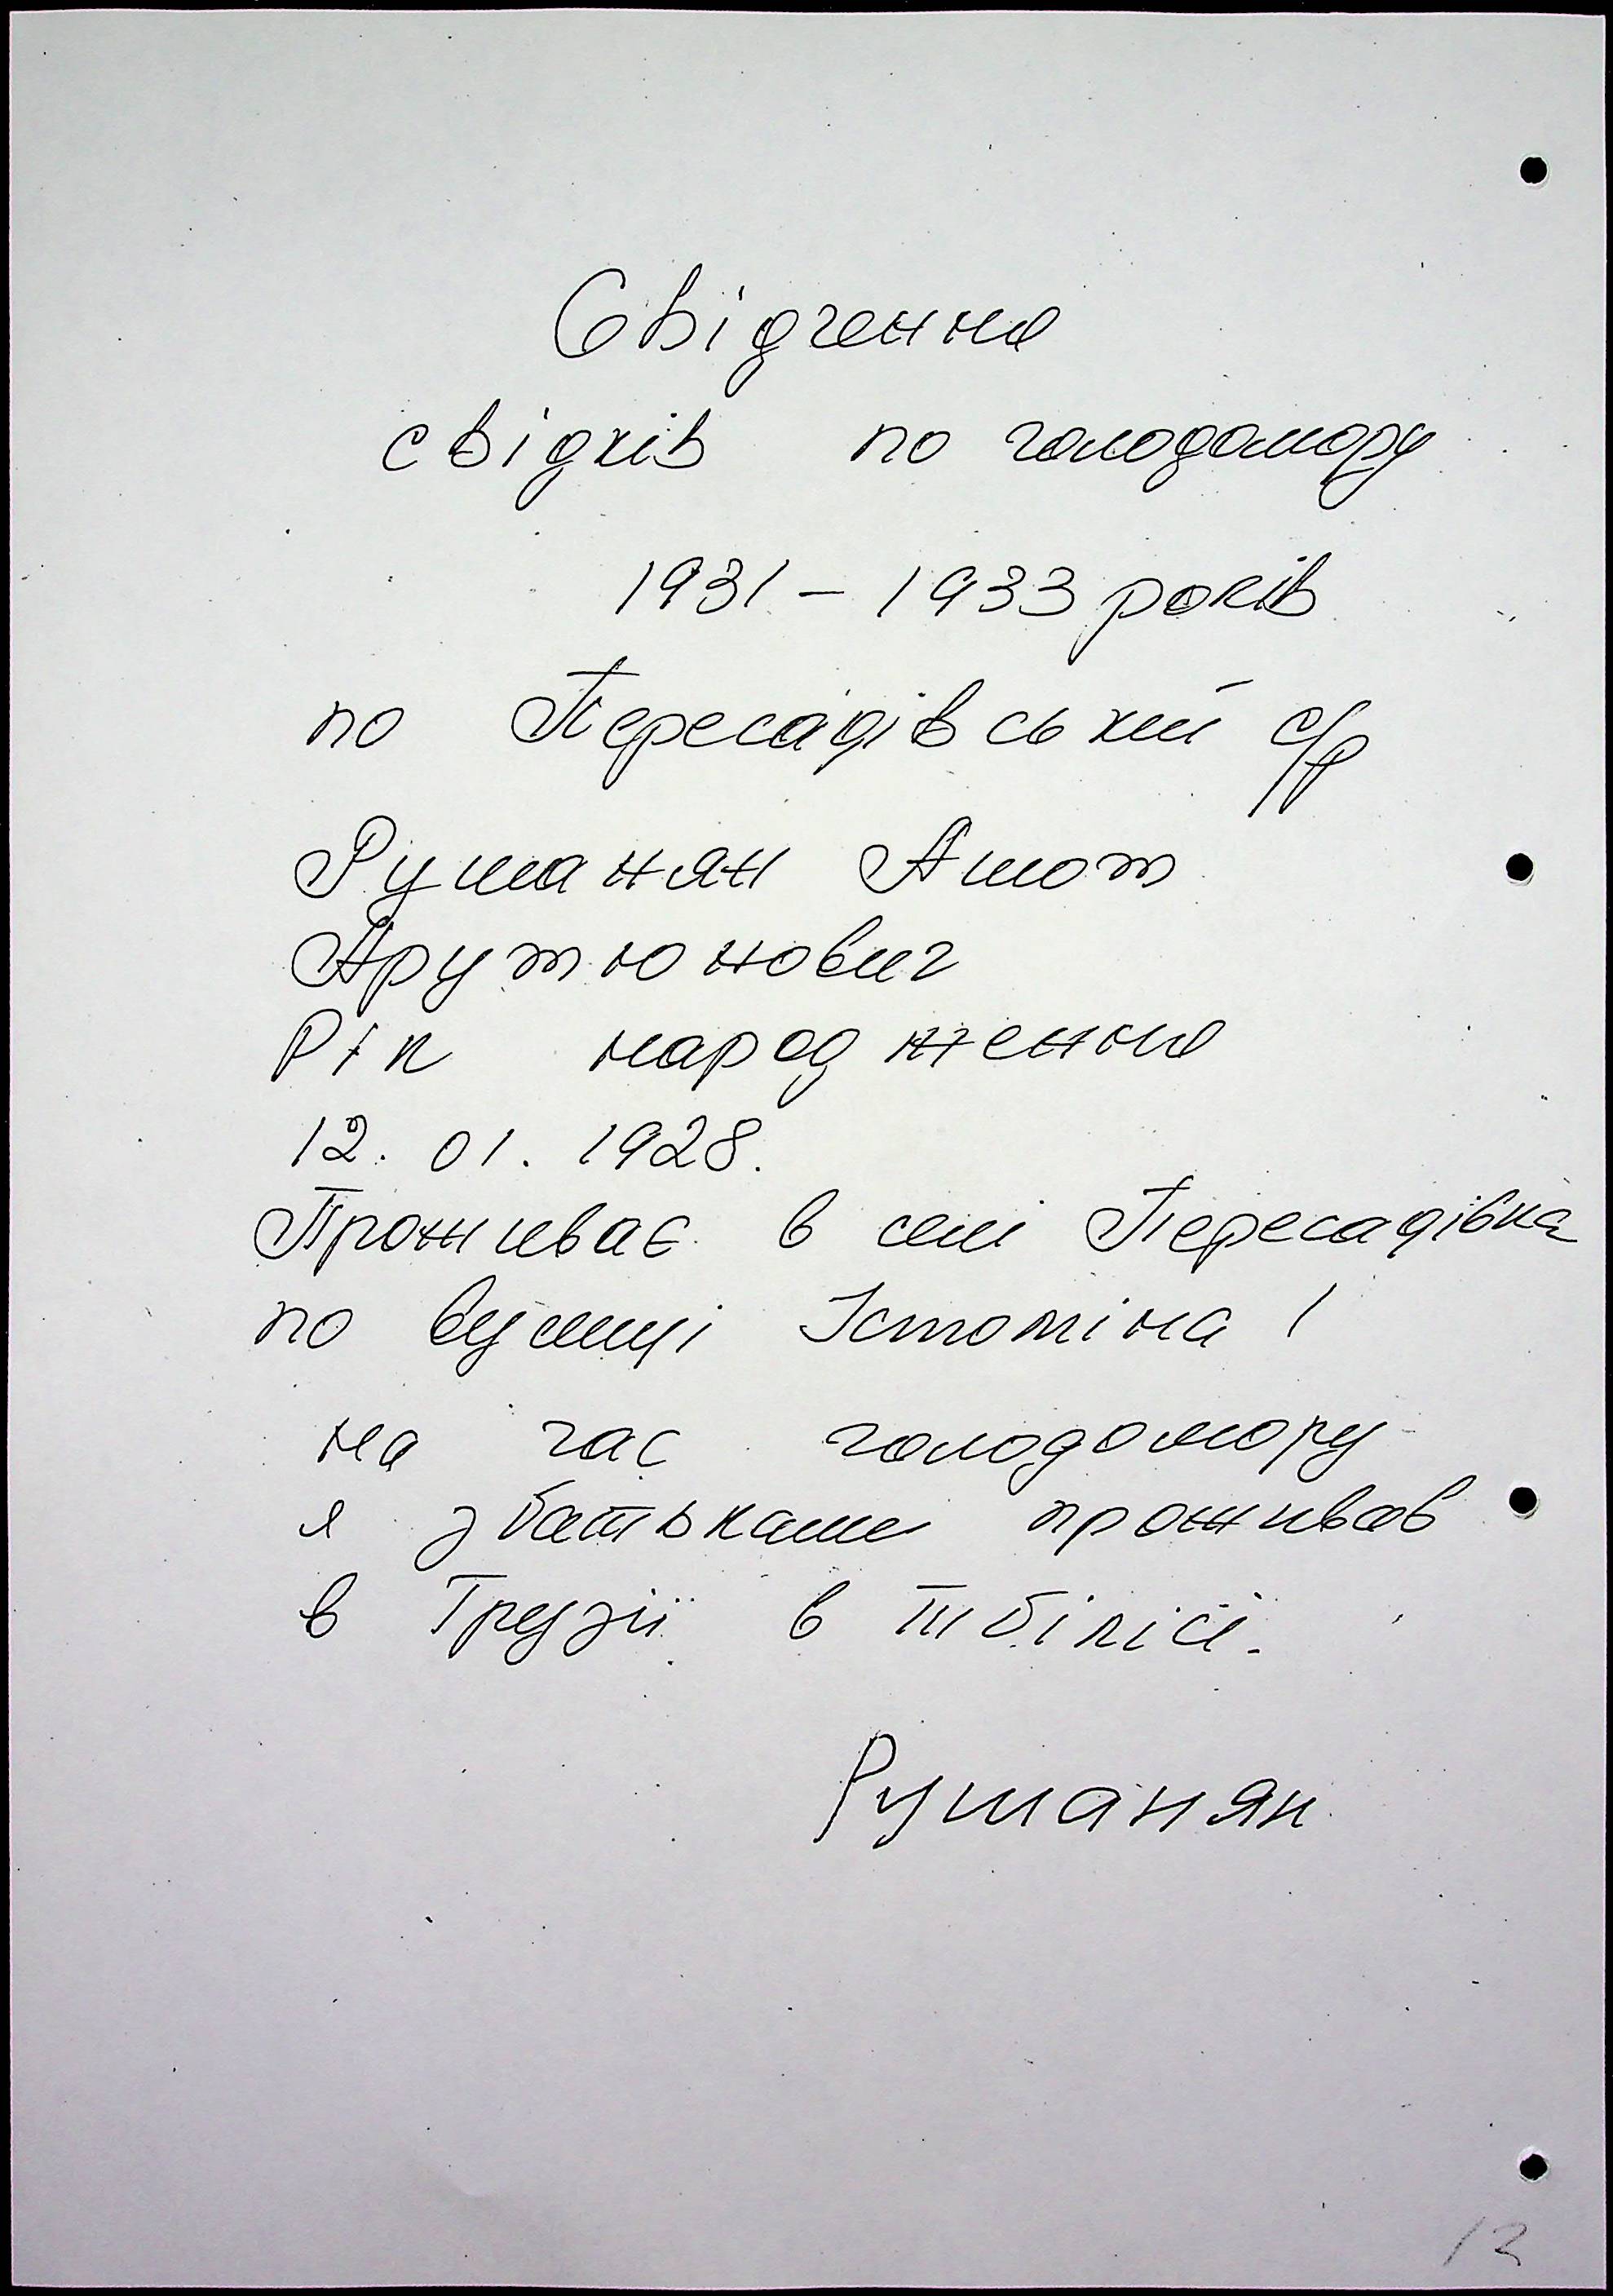 Свідчення
свідків по голодомору
1931 – 1933 років
по Пересадівській с/р
Рушанян Ашот
Арутюнович
Рік народження
12. 01. 1928.
Проживає в селі Пересадівка
по вулиці Істоміна 1
на час голодомору
я з батьками проживав
в Грузії в Тбілісі.
Рушанян
12